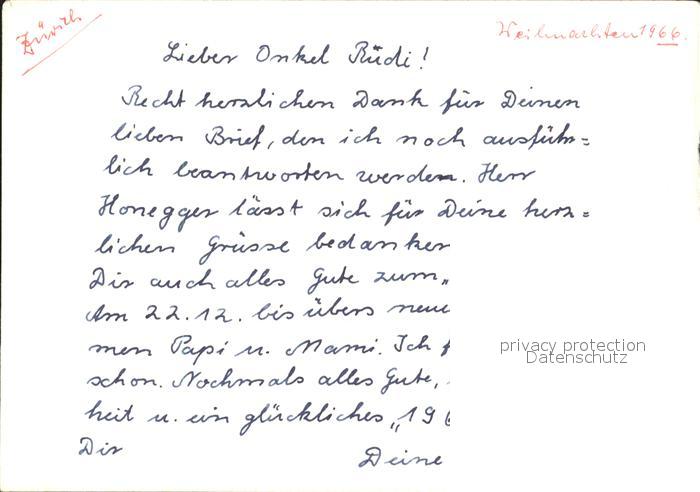 Zürich
Weihnachten 1966.
Lieber Onkel Rüdi!
Recht herzlichen Dank für Deinen
lieben Brief, den ich noch ausführ=
lich beantworten werden. Herr
Honegger lässt sich für Deine herz=
lichen Grüsse bedanken
Dir auch alles Gute zum„
Am 22.12. bis übers neue
men Papi u. Mami. Ich
schon. Nochmals alles Gute,
heit u. ein glückliches „196
Dir
Deine
privacy protection
Datenschutz